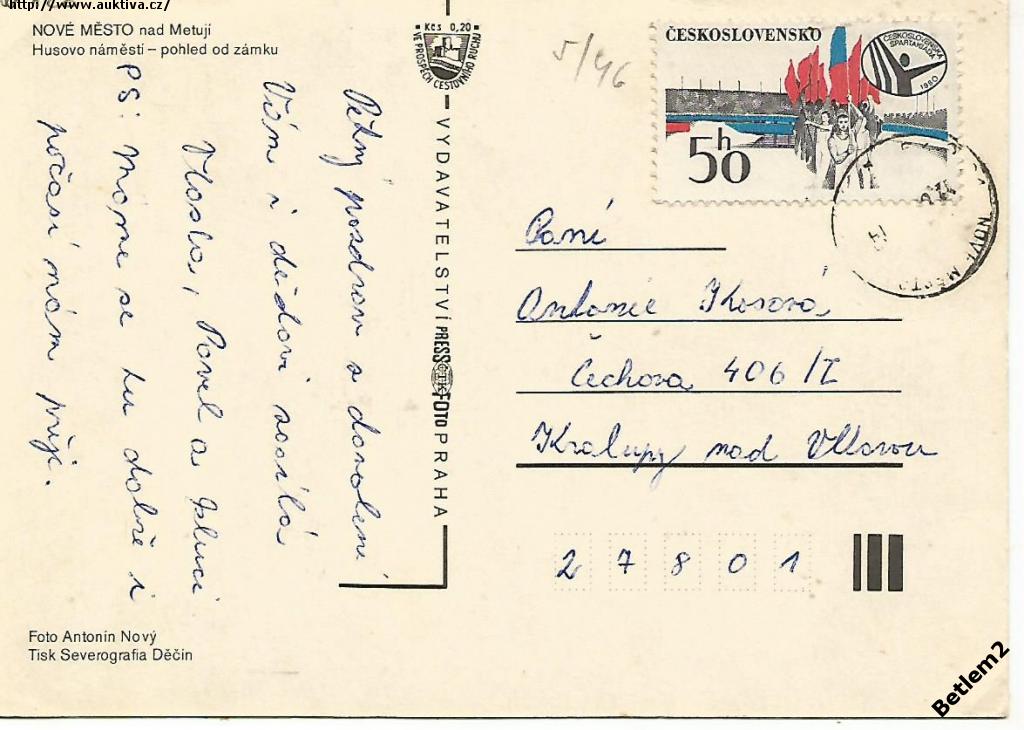 http://www.auktiva.cz/
NOVÉ MĚSTO nad Metují
Husovo náměstí – pohled od zámku
Kčs 0,20
VE PROSPĚCH CESTOVNÍHO RUCHU
VYDAVATELSTVÍ PRESSFOTO PRAHA
ČTK
5/46
ČESKOSLOVENSKO
ČESKOSLOVENSKÁ
SPARTAKIÁDA
1980
50h
NOVÉ MĚSTO
Pěkný pozdrav z dovolené
Vám i dědovi posílá
Vlasta, Pavel a kluci
PS: Máme se tu dobře i
počasí nám přeje.
Paní
Antonie Kosová
Čechova 406/I
Kralupy nad Vltavou
27801
Foto Antonín Nový
Tisk Severografia Děčín
Betlem2